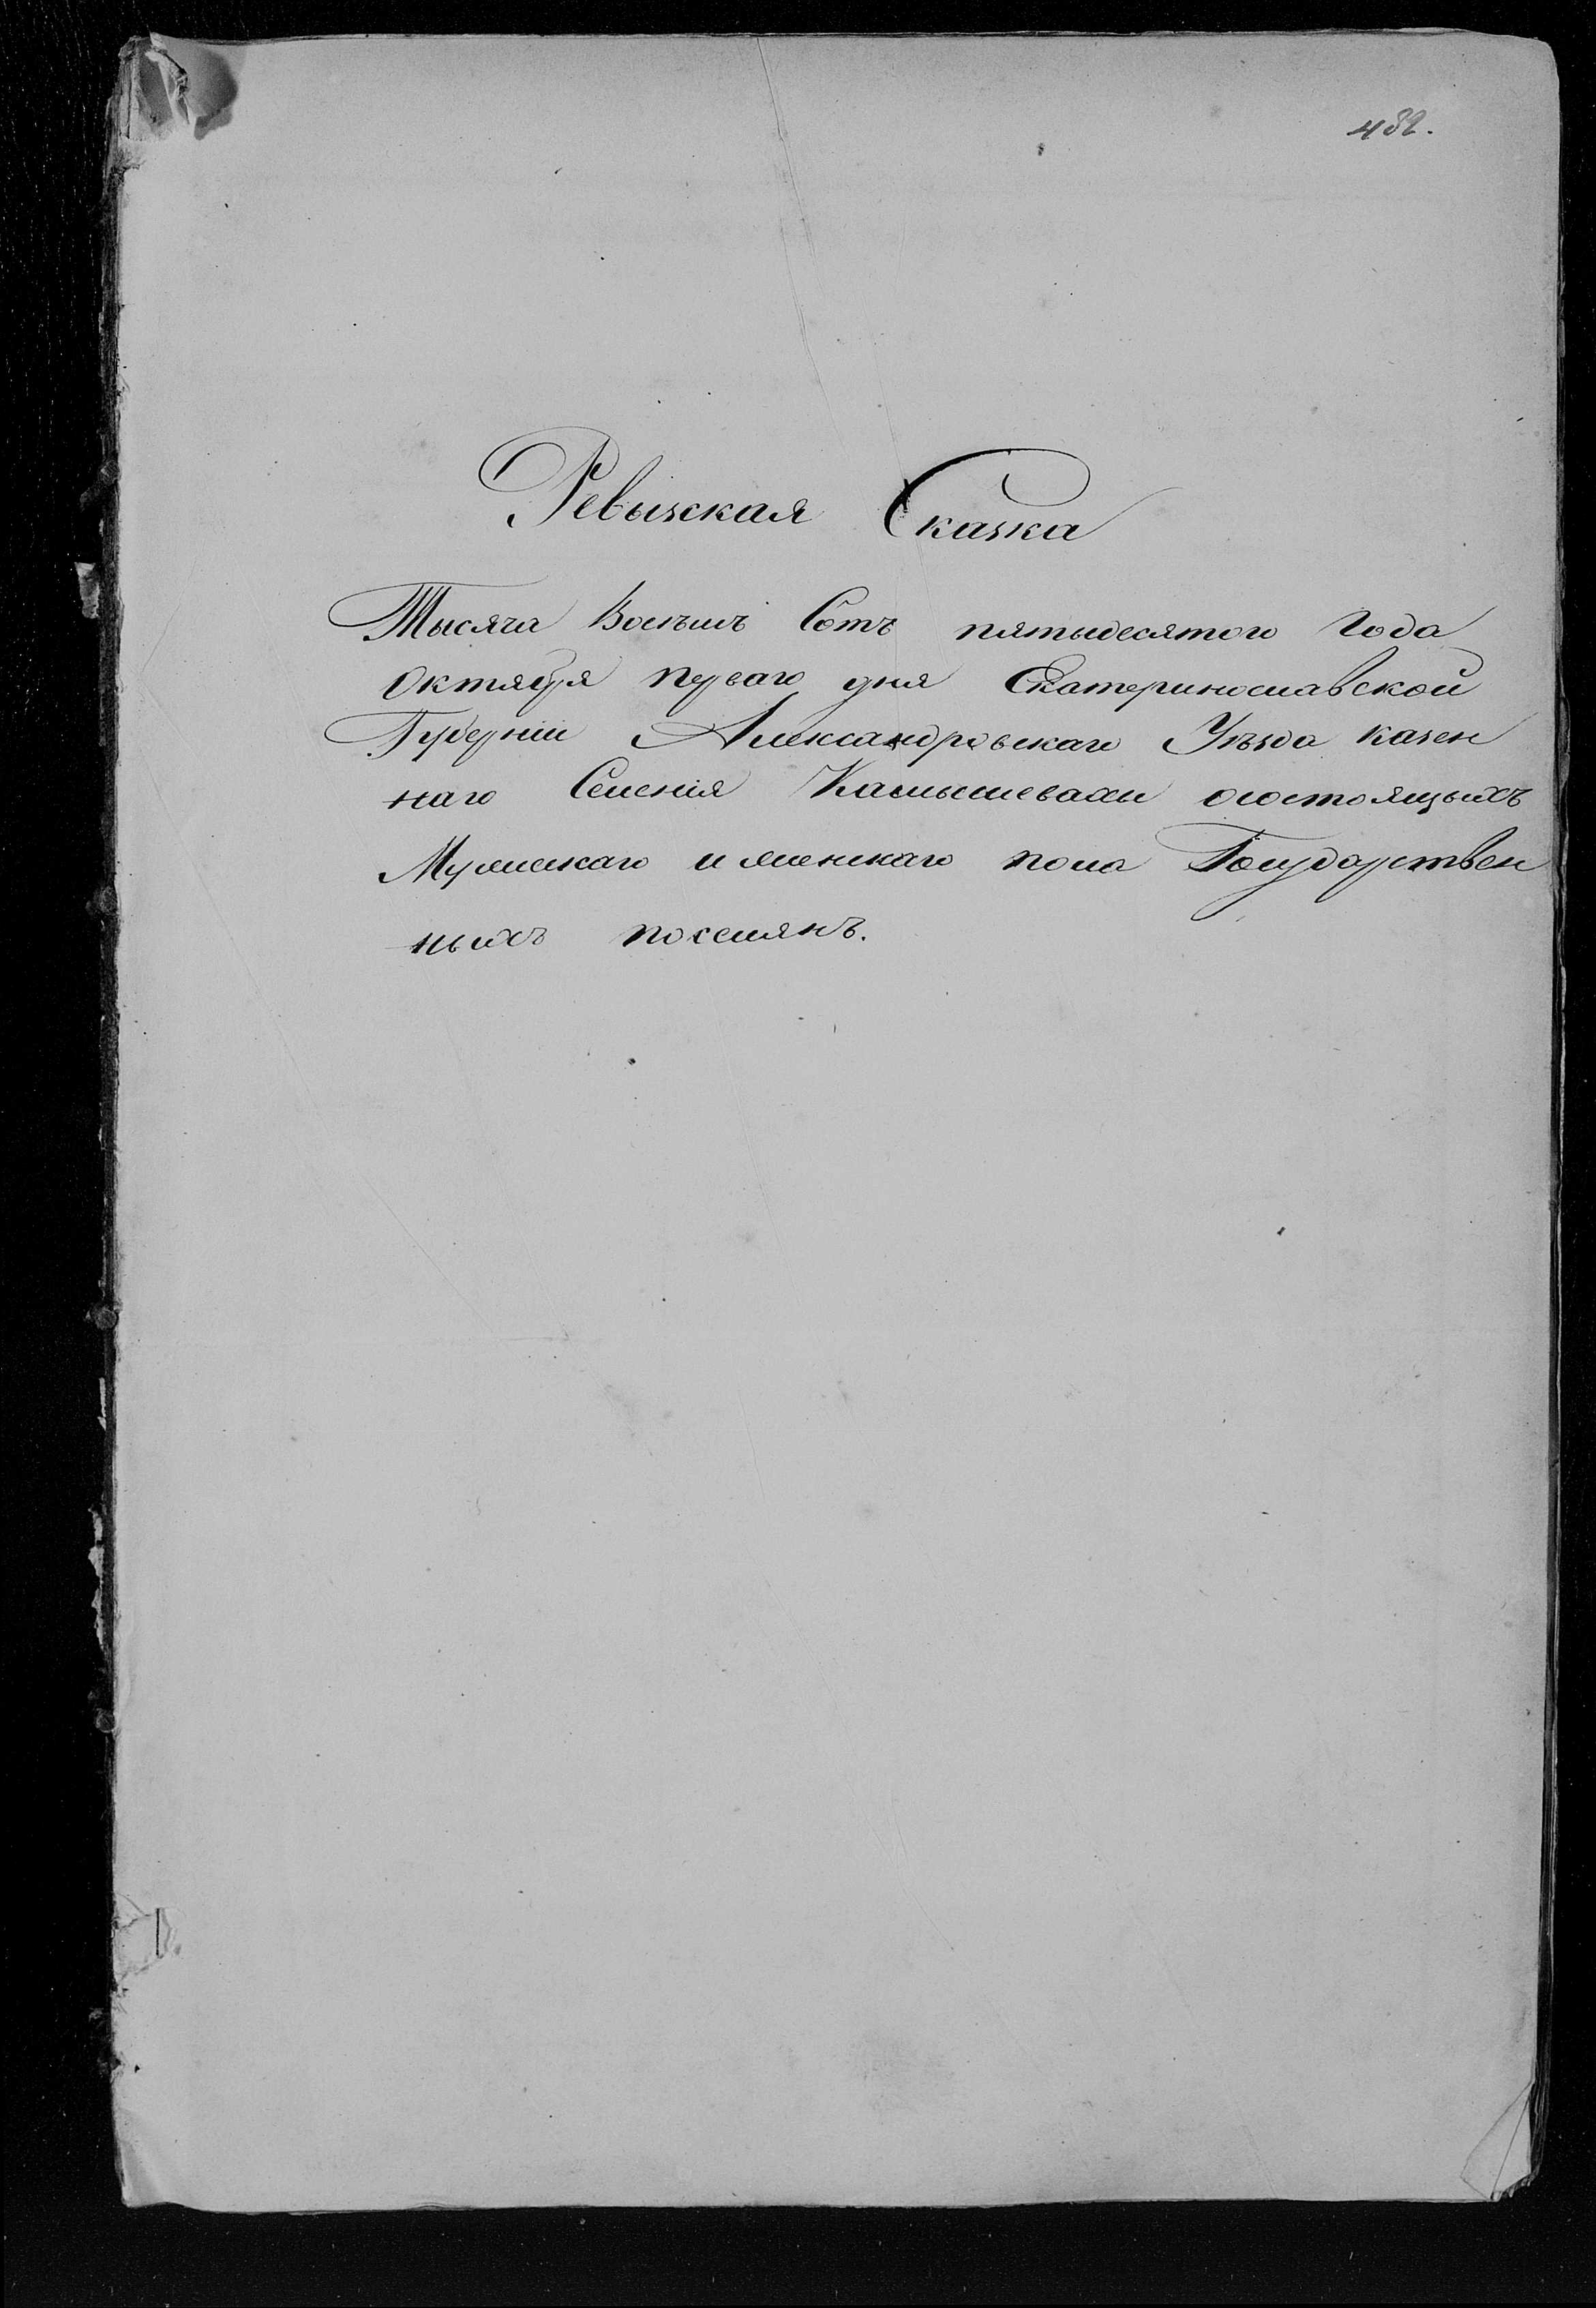 482.
Ревизская Сказка
Тысяча Восемъ Сотъ пятьідесятого Года
Октября перваго дня Екатеринославской
Губерніи Александровскаго Уѣзда казен
наго Селенія Камышевахи состоящихъ
Мужескаго и женскаго пола Государствен
ныхъ поселянъ.